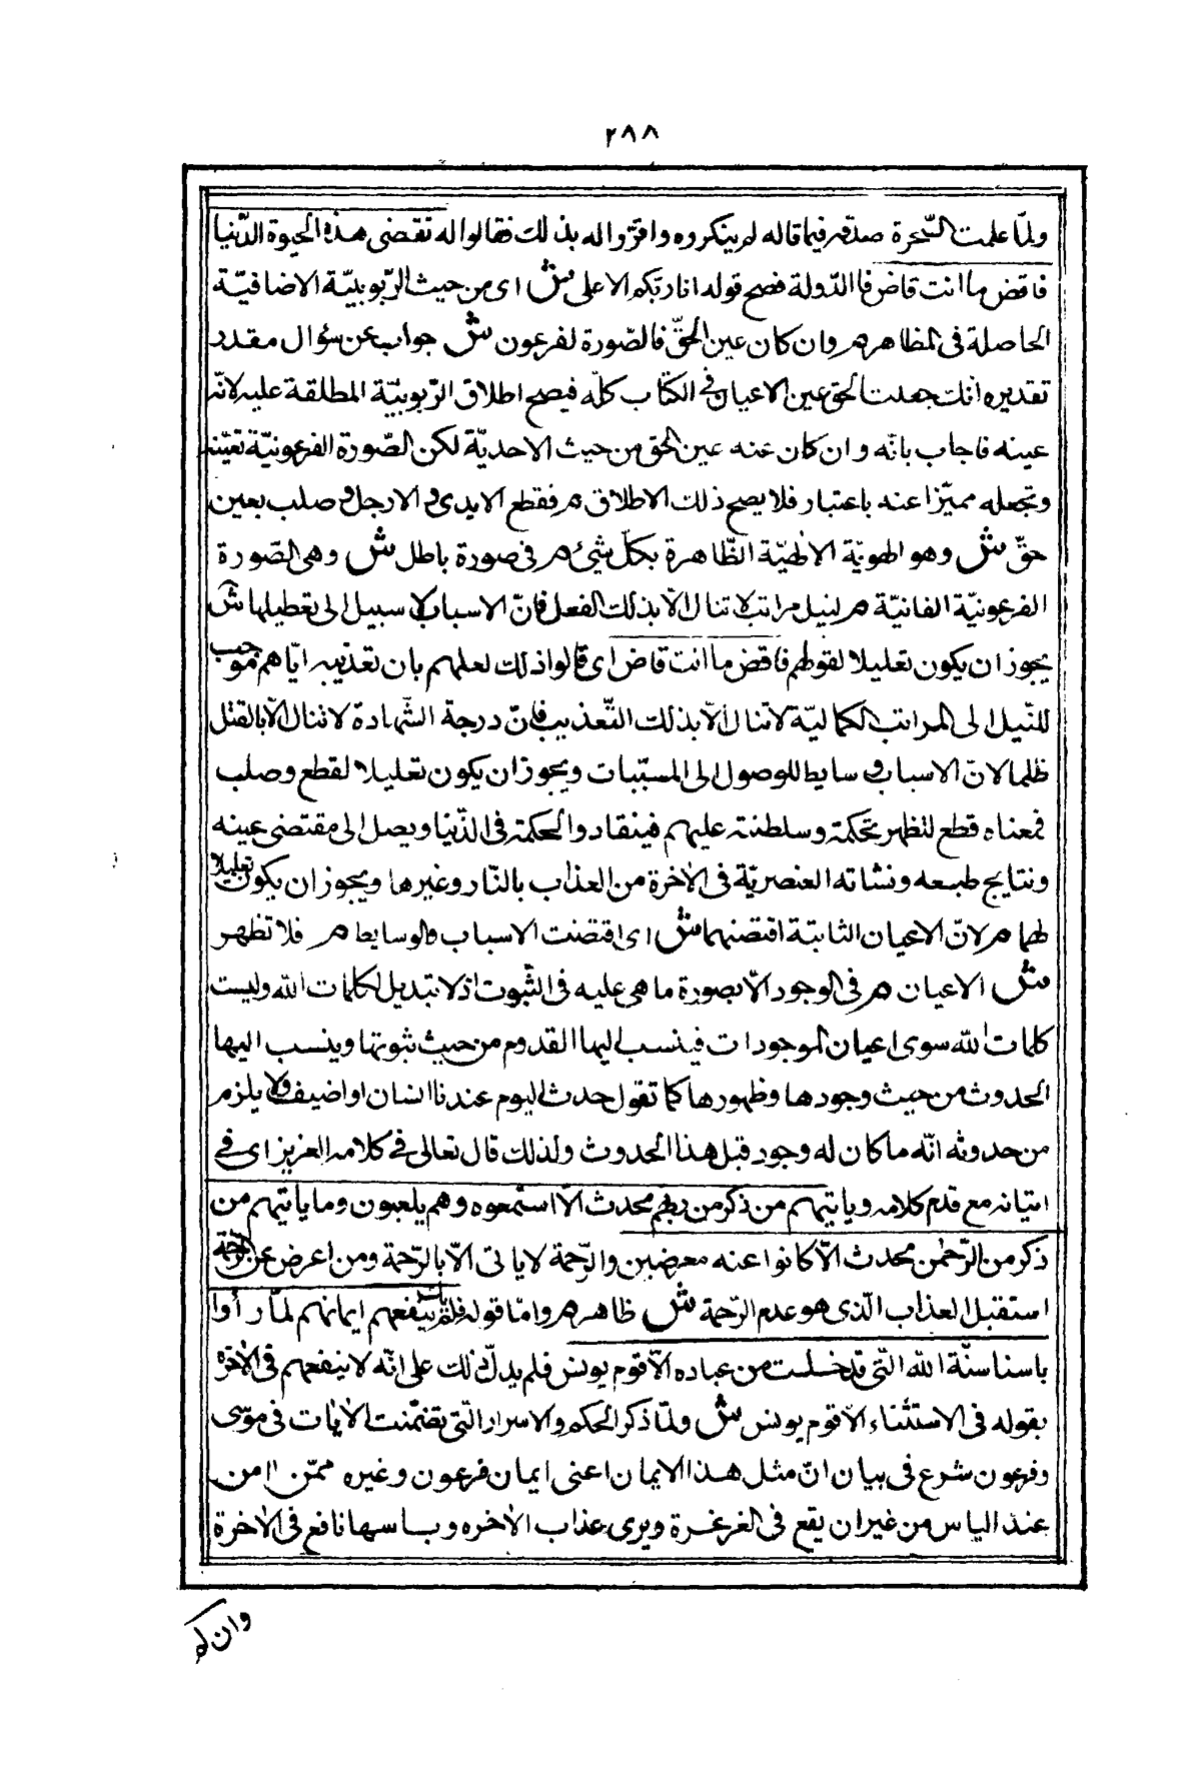 ٣٨٨
ولمّا علمت السّحرة صدقه فيما قاله لم ينكروه واقرّوا له بذلك فقالوا له تقضى هذه الحيوة الدّنيا
فاقض ما انت قاض فالدّولة فصح قوله انا ربّكم الاعلى ش اى من حيث الرّبوبيّة الاضافيّة
الحاصلة فى المظاهر م وان كان عين الحقّ فالصّورة لفرعون ش جواب عن سؤال مقدر
تقديره انّك جعلت الحق عين الاعيان فى الكتاب كلّه فيصح اطلاق الرّبوبيّة المطلقة عليه لانّه
عينه فاجاب بانّه وان كان عنه عين الحق من حيث الاحديّة لكن الصّورة الفرعونيّة تعيّنه
وتجعله مميّزا عنه باعتبار فلا يصح ذلك الاطلاق م فقطع الايدى و الارجل و صلب بعين
حقّ ش وهو الهويّة الالٰهيّة الظّاهرة بكلّ شئ م فى صورة باطل ش وهى الصّورة
الفرعونيّة الفانيّة م لنيل مراتب لا تنال الّا بذلك الفعل فانّ الاسباب لا سبيل الى تعطيلها ش
يجوز ان يكون تعليلا لقولهم فاقض ما انت قاض اى قالوا ذلك لعلمهم بان تعذيبه ايّاهم موجب
للنّيل الى المراتب الكماليّة لا تنال الّا بذلك التّعذيب فانّ درجة الشّهادة لا تنال الّا بالقتل
ظلما لانّ الاسباب وسايط للوصول الى المسبّبات ويجوز ان يكون تعليلا لقطع وصلب
فمعناه قطع لتظهر تحكمه وسلطنته عليهم فينقادوا لحكمه فى الدّنيا ويصل الى مقتضى عينه
ونتايج طبعه ونشاته العنصريّة فى الاٰخرة من العذاب بالنّار وغيرها ويجوز ان يكون تعليلا
لهما م لانّ الاعيان الثابتة اقتضتها ش اى اقتضت الاسباب والوسايط م فلا تظهر
ش الاعيان م فى الوجود الّا بصورة ما هى عليه فى الثّبوت اذ لا تبديل لكلمات الله وليست
كلمات الله سوى اعيان الموجودات فينسب اليها القدوم من حيث ثبوتها وينسب اليها
الحدوث من حيث وجودها وظهورها كما تقول حدث اليوم عندنا انسان او ضيف ولا يلزم
من حدوثه انّه ما كان له وجود قبل هذا الحدوث ولذلك قال تعالى فى كلامه العزيز اى فى
اتيانه مع قدم كلامه و ياتيهم من ذكر من ربّهم محدث الّا استمعوه وهم يلعبون وما ياتيهم من
ذكر من الرّحمٰن محدث الّا كانوا عنه معرضين والرّحمة لا ياتى الّا بالرّحمة ومن اعرض عن الرّحمة
استقبل العذاب الّذى هو عدم الرّحمة ش ظاهر م وامّا قوله فلم ينفعهم ايمانهم لمّا رأوا
باسنا سنّة الله الّتى قد خلت من عباده الّا قوم يونس فلم يدلّ ذلك على انّه لا ينفعهم فى الاٰخرة
بقوله فى الاستثناء الّا قوم يونس ش ولمّا ذكر الحكم والاسرار الّتى تضمّنت الاٰيات فى موسى
وفرعون شرع فى بيان انّ مثل هذا الايمان اعنى ايمان فرعون وغيره ممّن اٰمن
عند الياس من غير ان يقع فى الغرغرة ويرى عذاب الاٰخره وباسها نافع فى الاٰخرة